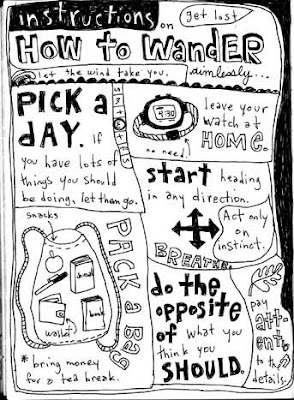 instructions on
get lost
How to wander
let the wind take you.
aimlessly...
PICK a
DAY. If
you have lots of
things you should
be doing, let them go.
leave your
watch at
HOME.
9:30
no need!
start heading
in any direction.
Act only
on
instinct.
BREATHE.
snacks
PACK A BAG
book
wallet
* bring money
for a tea break.
do the
opposite
of what you
think you
SHOULD.
pay
att-
ent.
to the
details.